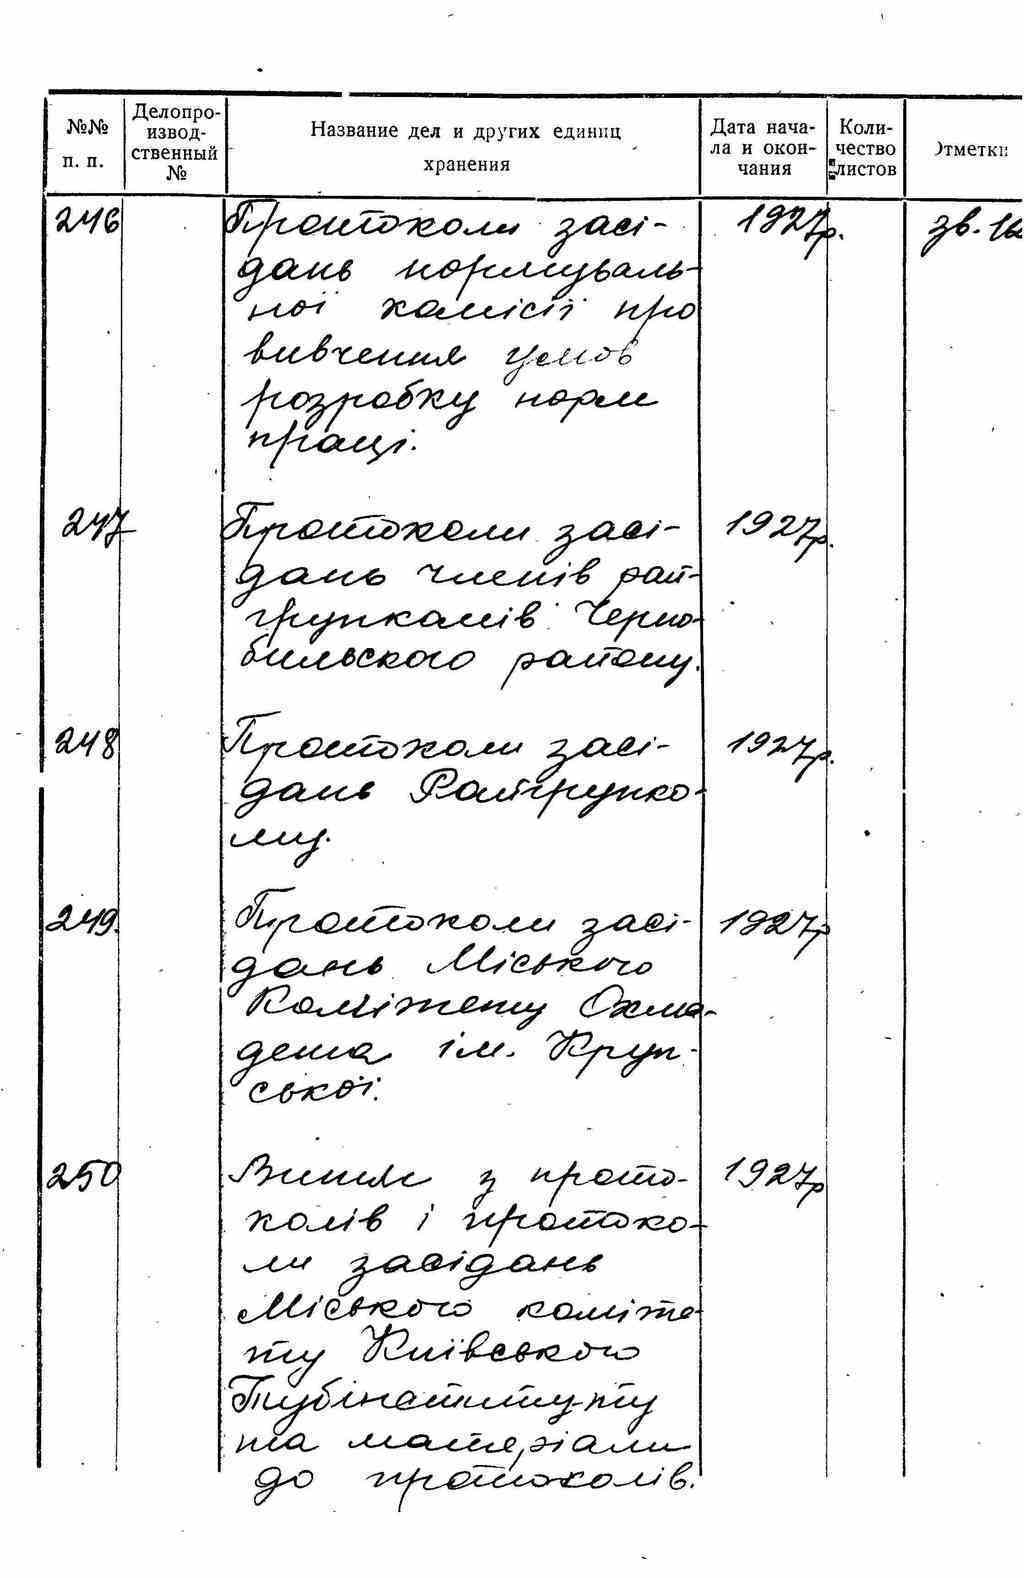 №№ п. п.
Делопроизводственный №
Название дел и других единиц хранения
Дата начала и окончания
Количество листов
Отметки
246 Протоколи засі- 1927р. зв.
дань нормуваль-
ної комісії про
вивчення умов
розробку норм
праці.
247 Протоколи засі- 1927р.
дань членів рай-
групкомів Чорно-
бильского району.
248 Протоколи засі- 1927р.
дань Райгрупко-
му.
249. Протоколи засі- 1927р
дань Міського
Комітету Охма-
дета ім. Круп-
ської.
250 Витяг з прото- 1927р
колів і протоко-
ли засідань
Міського коміте-
ту Київського
Тубінституту
та матеріали
до протоколів.